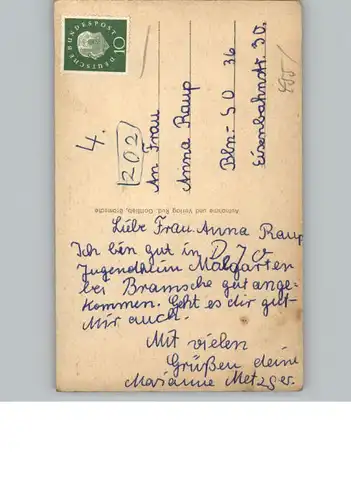 DEUTSCHE BUNDESPOST
10
4.
202
An Frau
Anna Raup
Bln.- SO 36
Eisenbahnstr. 30.
Aufnahme und Verlag Rud. Gottlieb, Bramsche
Liebe Frau Anna Raup
Ich bin gut in D J O
Jugendheim Malgarten
bei Bramsche gut ange-
kommen. Geht es dir gut-
Mir auch.
Mit vielen
Grüßen deine
Marianne Metzger.